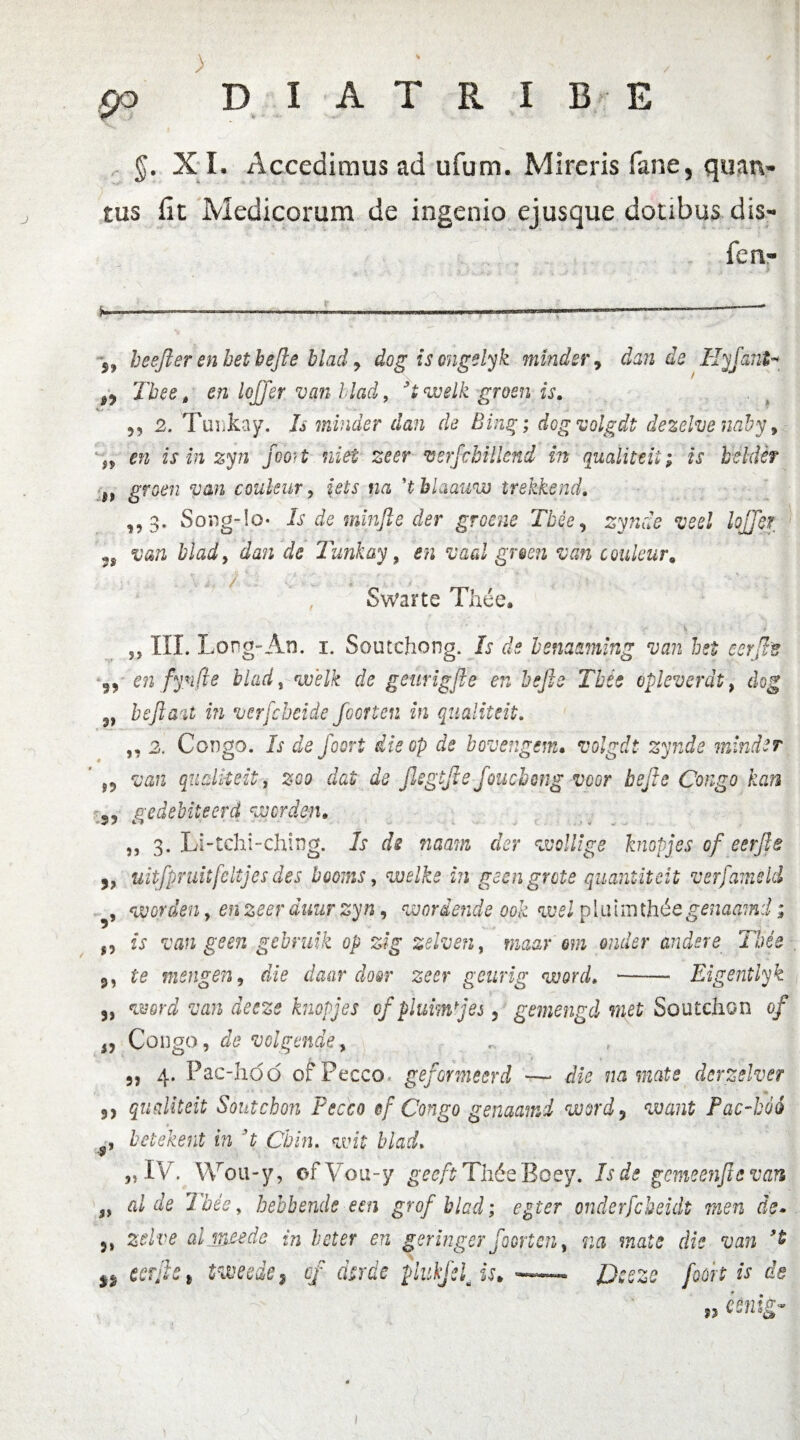 90 DIATRIBE
§. XI. Accedimus ad uſum. Mireris ſane, quan-
tus ſit Medicorum de ingenio ejusque dotibus dis-
ſen-
„ heeſter en het beſte blad, dog is ongelyk minder, dan de Hyſant-
„ Thee, en loſſer van blad, 't welk groen is.
„ 2. Tunkay. Is minder dan de Bing; dog volgdt dezelve naby,
„ en is in zyn ſoort niet zeer verſchillend in qualiteit; is helder
„ groen van couleur, iets na 't blaauw trekkend.
„ 3. Song-lo. Is de minſte der groene Thée, zynde veel loſſer
„ van blad, dan de Tunkay, en vaal groen van couleur.
Swarte Thée.
„ III. Long-An. 1. Soutchong. Is de benaaming van het eerſte
„ en fynſte blad, welk de geurigſte en beſte Thée opleverdt, dog
„ beſtaat in verſcheide ſoorten in qualiteit.
„ 2. Congo. Is de ſoort die op de bovengem. volgdt zynde minder
„ van qualiteit, zoo dat de ſlegtſte ſouchong voor beſte Congo kan
„ gedebiteerd worden.
„ 3. Li-tchi-ching. Is de naam der wollige knopjes of eerſte
„ uitſpruitſeltjes des booms, welke in geen grote quantiteit verſameld
„ worden, en zeer duur zyn, wordende ook wel pluimthée genaamd;
„ is van geen gebruik op zig zelven, maar om onder andere Thée
„ te mengen, die daar door zeer geurig word. —— Eigentlyk
„ word van deeze knopjes of pluimtjes, gemengd met Soutchon of
„ Congo, de volgende,
„ 4. Pac-hóó of Pecco geformeerd — die na mate derzelver
„ qualiteit Soutchon Pecco of Congo genaamd word, want Pac-hóó
„ betekent in 't Chin. wit blad.
„ IV. Wou-y, of Vou-y geeft Thée Boey. Is de gemeenſte van
„ al de Thée, hebbende een grof blad; egter onderſcheidt men de-
„ zelve al meede in beter en geringer ſoorten, na mate die van 't
„ eerſte, tweede, of derde plukſel is. —— Deeze ſoort is de
„ eenig-